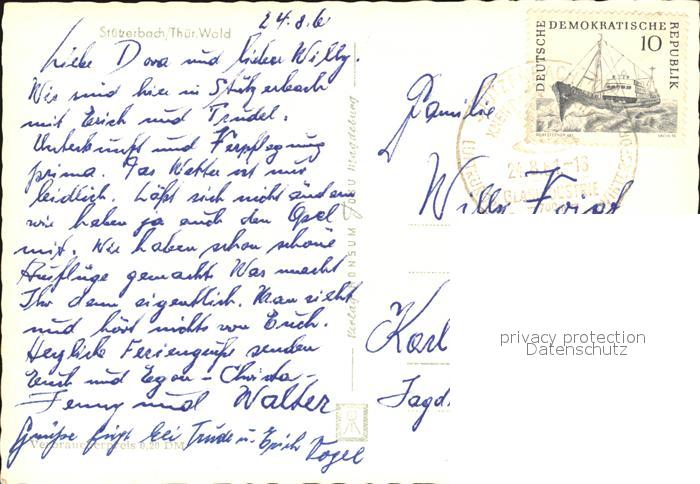 24.8.6
Stützerbach/Thür. Wald
Liebe Dora und lieber Willy.
Wir sind hier in Stützerbach
mit Erich und Trudel.
Unterkunft und Verpflegung
prima. Das Wetter ist nur
leidlich. Läßt sich nicht ändern
wir haben ja auch den Opel
mit. Wir haben schon schöne
Ausflüge gemacht Was macht
Ihr denn eigentlich. Man sieht
und hört nichts von Euch.
Herzliche Feriengrüße senden
Euch und Egon - Christa -
Jenny und Walter
Verbraucherpreis 0,20 DM
Grüße fügt bei Trude u. Erich
Vogel
Verlag KONSUM Foto Magdeburg
DEUTSCHE DEMOKRATISCHE REPUBLIK
10
GLASINDUSTRIE
Familie
Willy
Karl
Jagd
privacy protection
Datenschutz